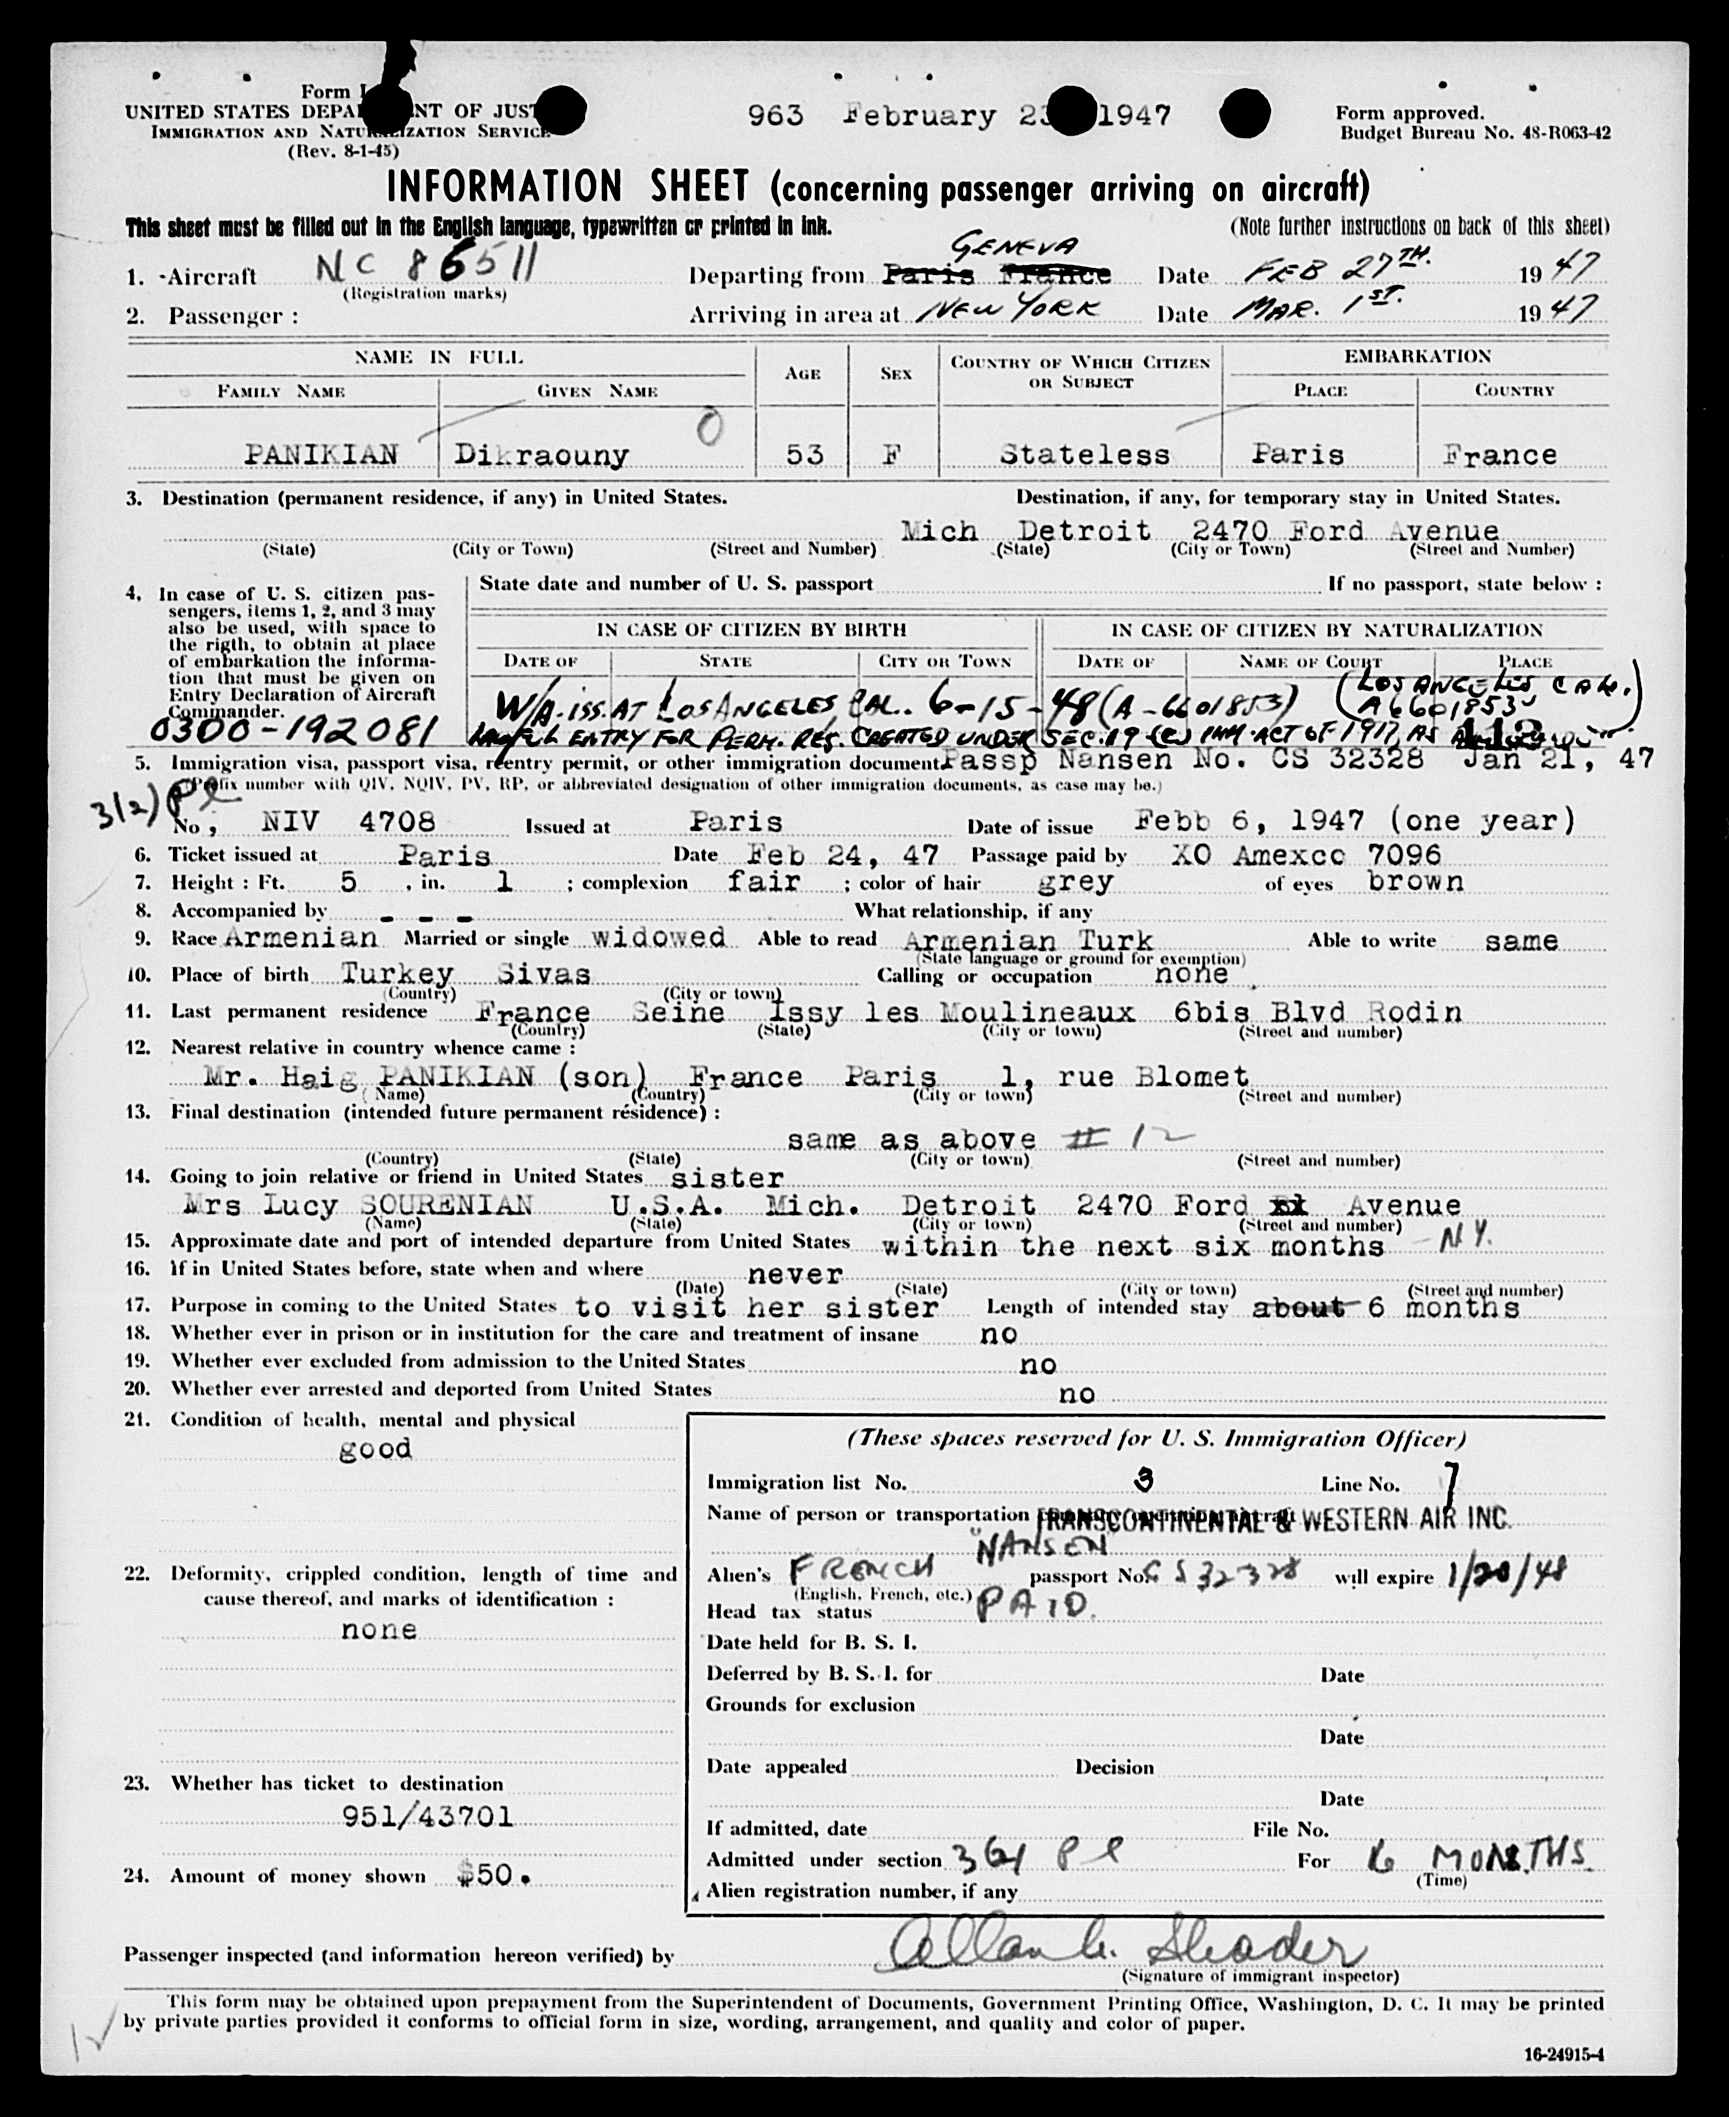 Form I
UNITED STATES DEPA NT OF JUST
IMMIGRATION AND NATURALIZATION SERVICE
(Rev. 8-1-45)
963 February 23 1947
Form approved.
Budget Bureau No. 48-R063-42
INFORMATION SHEET (concerning passenger arriving on aircraft)
This sheet must be filled out in the English language, typewritten or printed in ink.
(Note further instructions on back of this sheet)
GENEVA
1. Aircraft NC 86511 Departing from Paris France Date FEB 27TH. 1947
(Registration marks)
2. Passenger : Arriving in area at NEW YORK Date MAR. 1ST. 1947
NAME IN FULL AGE SEX COUNTRY OF WHICH CITIZEN OR SUBJECT EMBARKATION
FAMILY NAME GIVEN NAME PLACE COUNTRY
0
PANIKIAN Dikraouny 53 F Stateless Paris France
3. Destination (permanent residence, if any) in United States. Destination, if any, for temporary stay in United States.
Mich Detroit 2470 Ford Avenue
(State) (City or Town) (Street and Number) (State) (City or Town) (Street and Number)
4, In case of U. S. citizen pas-
sengers, items 1, 2, and 3 may
also be used, with space to
the rigth, to obtain at place
of embarkation the informa-
tion that must be given on
Entry Declaration of Aircraft
Commander.
State date and number of U. S. passport If no passport, state below :
IN CASE OF CITIZEN BY BIRTH IN CASE OF CITIZEN BY NATURALIZATION
DATE OF STATE CITY OR TOWN DATE OF NAME OF COURT PLACE
(LOS ANGELES, CAL.
W/A. ISS. AT LOS ANGELES CAL. 6-15-48 (A-6601853) A6601853)
0300-192081 LAWFUL ENTRY FOR PERM. RES. CREATED UNDER SEC. 19 (C) IMM. ACT OF 1917, AS
5. Immigration visa, passport visa, reentry permit, or other immigration document Passp Nansen No. CS 32328 Jan 21, 47
(Prefix number with QIV, NQIV, PV, RP, or abbreviated designation of other immigration documents, as case may be.)
3(2) Pl
No, NIV 4708 Issued at Paris Date of issue Febb 6, 1947 (one year)
6. Ticket issued at Paris Date Feb 24, 47 Passage paid by XO Amexco 7096
7. Height : Ft. 5 , in. 1 ; complexion fair ; color of hair grey of eyes brown
8. Accompanied by - - - What relationship, if any
9. Race Armenian Married or single widowed Able to read Armenian Turk Able to write same
(State language or ground for exemption)
10. Place of birth Turkey Sivas Calling or occupation none
(Country) (City or town)
11. Last permanent residence France Seine Issy les Moulineaux 6bis Blvd Rodin
(Country) (State) (City or town) (Street and number)
12. Nearest relative in country whence came :
Mr. Haig PANIKIAN (son) France Paris 1, rue Blomet
(Name) (Country) (City or town) (Street and number)
13. Final destination (intended future permanent résidence) :
same as above # 12
(Country) (State) (City or town) (Street and number)
14. Going to join relative or friend in United States sister
Mrs Lucy SOURENIAN U.S.A. Mich. Detroit 2470 Ford Avenue
(Name) (State) (City or town) (Street and number)
15. Approximate date and port of intended departure from United States within the next six months - N.Y.
16. If in United States before, state when and where never
(Date) (State) (City or town) (Street and number)
17. Purpose in coming to the United States to visit her sister Length of intended stay about 6 months
18. Whether ever in prison or in institution for the care and treatment of insane no
19. Whether ever excluded from admission to the United States no
20. Whether ever arrested and deported from United States no
21. Condition of health, mental and physical
good
22. Deformity, crippled condition, length of time and
cause thereof, and marks of identification :
none
23. Whether has ticket to destination
951/43701
24. Amount of money shown $50.
(These spaces reserved for U. S. Immigration Officer)
Immigration list No. 3 Line No. 7
Name of person or transportation company operating aircraft TRANSCONTINENTAL & WESTERN AIR INC.
"NANSEN"
Alien's FRENCH passport No. CS 32328 will expire 1/20/48
(English, French, etc.)
Head tax status PAID.
Date held for B. S. I.
Deferred by B. S. I. for Date
Grounds for exclusion
Date
Date appealed Decision
Date
If admitted, date File No.
Admitted under section 3(2) Pl For 6 MONTHS.
(Time)
Alien registration number, if any
Passenger inspected (and information hereon verified) by Allan G. Shader
(Signature of immigrant inspector)
This form may be obtained upon prepayment from the Superintendent of Documents, Government Printing Office, Washington, D. C. It may be printed
by private parties provided it conforms to official form in size, wording, arrangement, and quality and color of paper.
16-24915-4